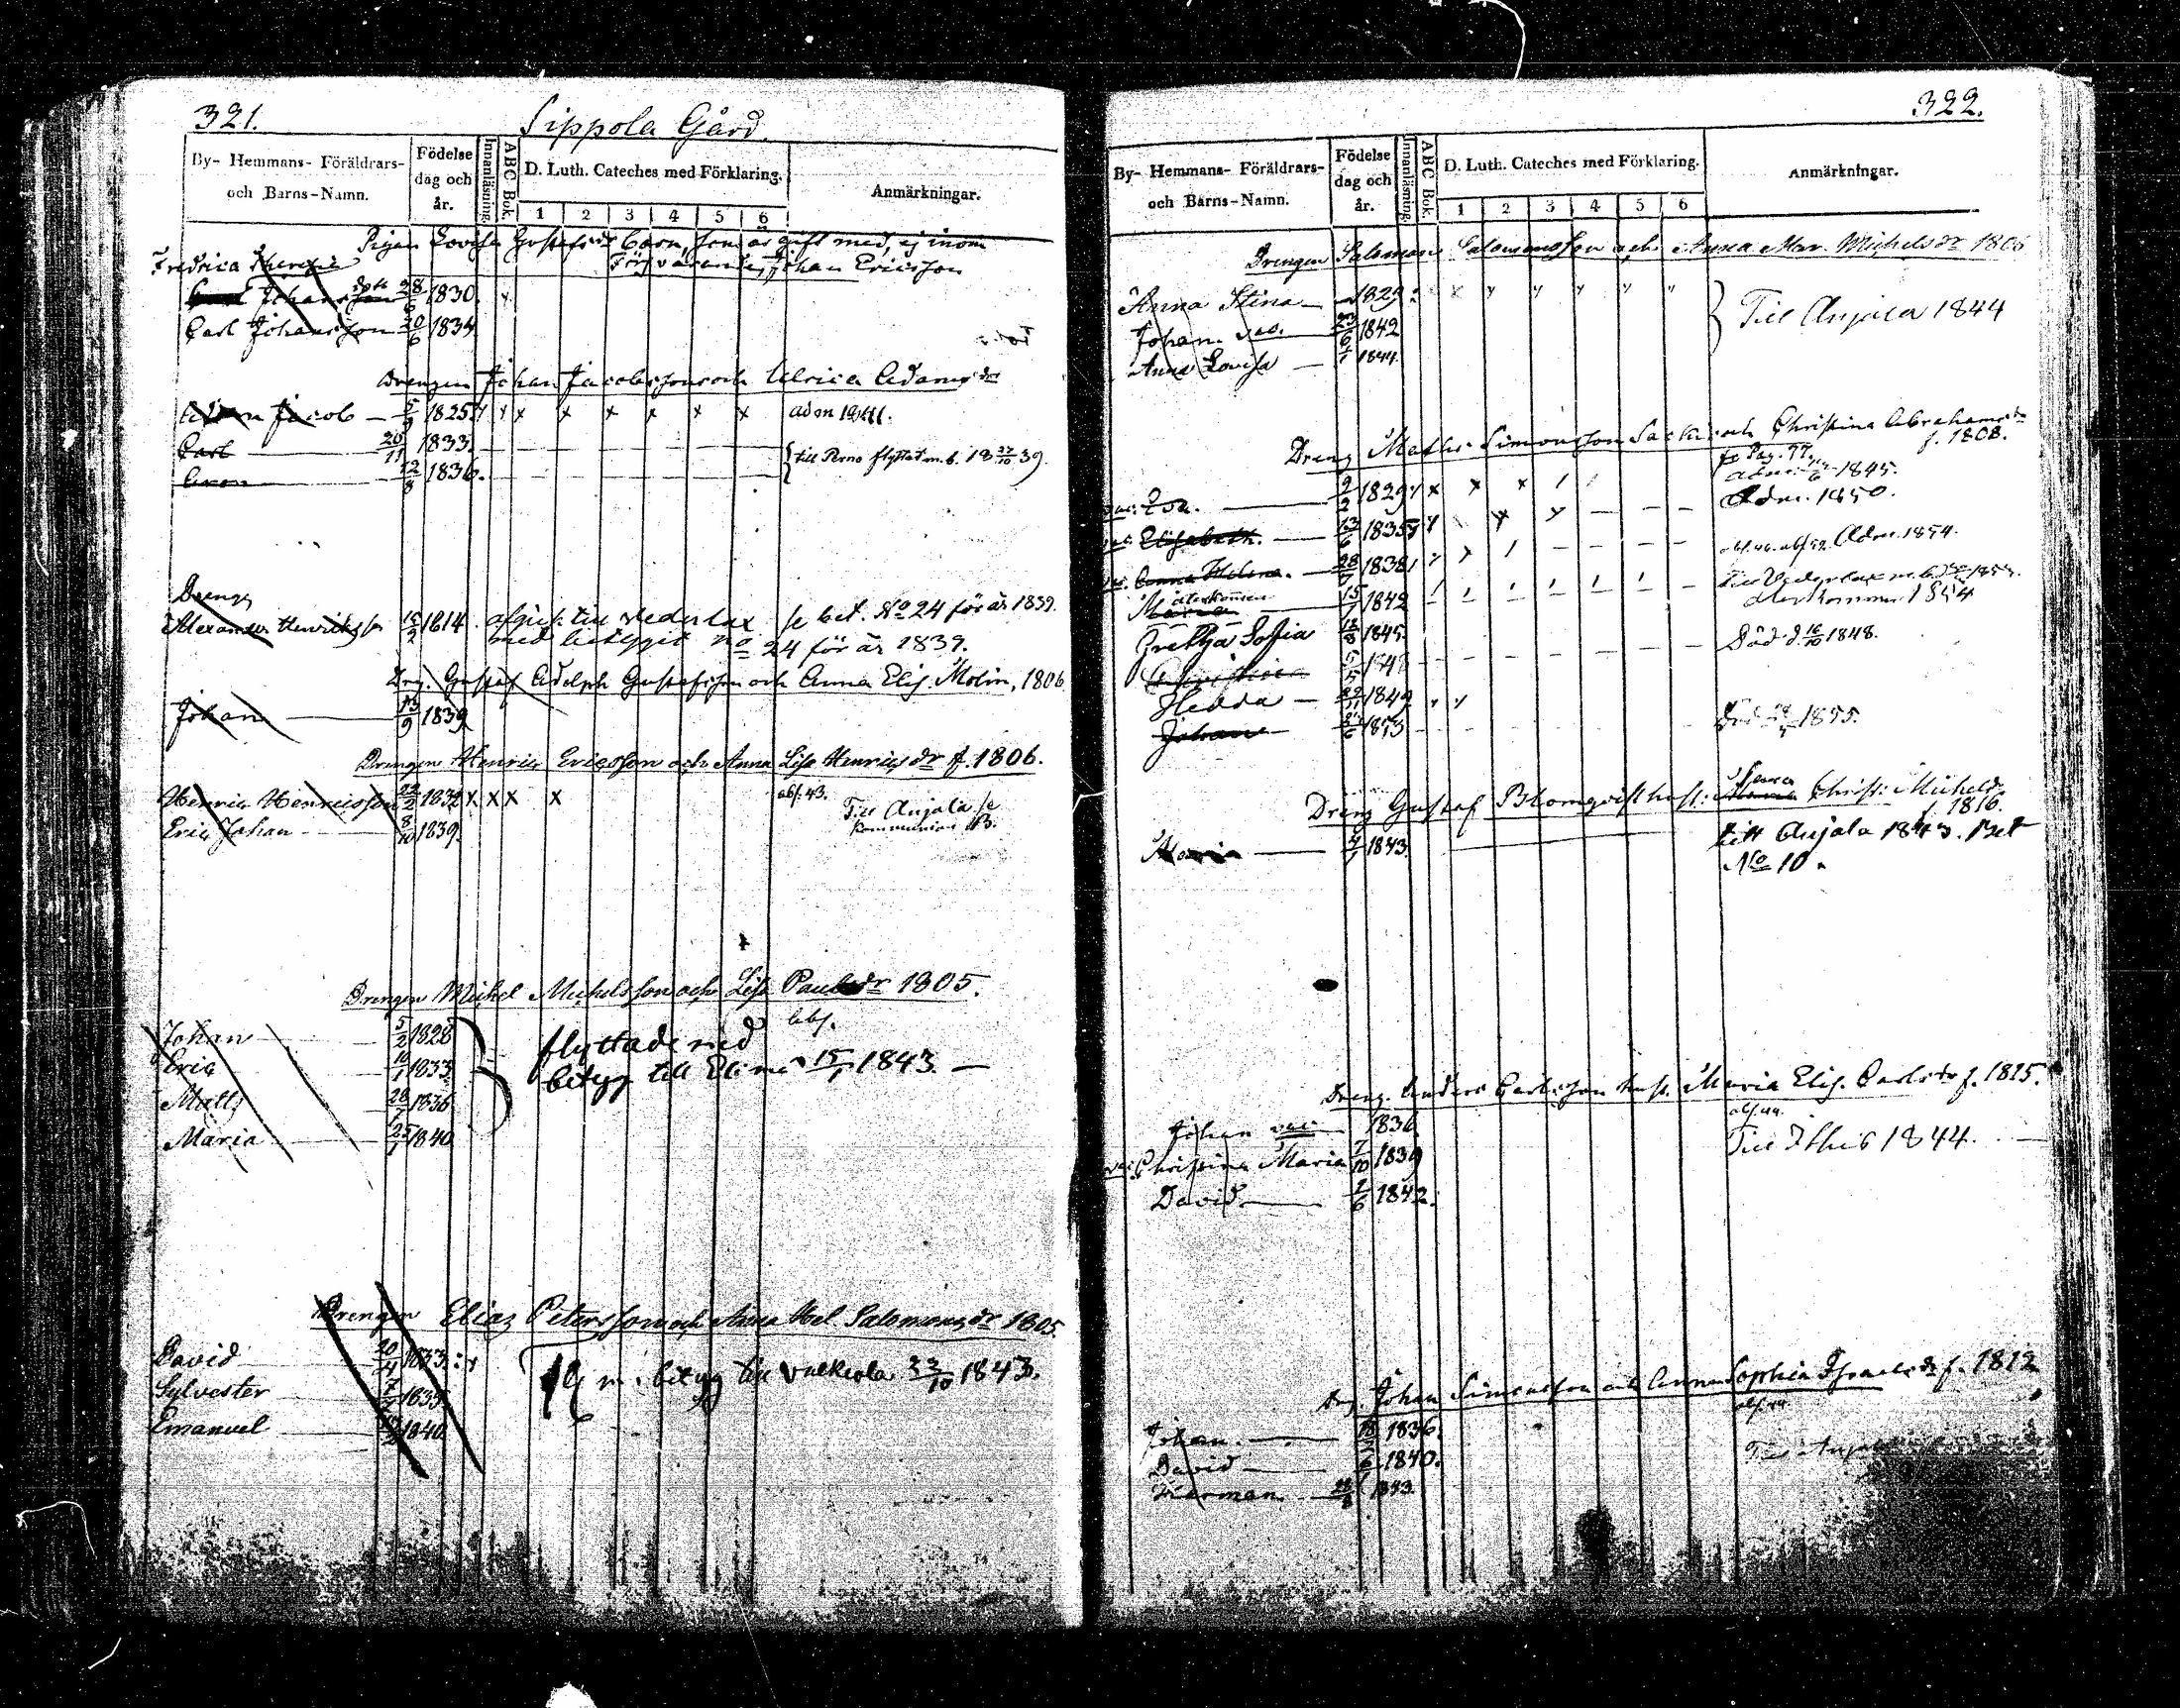 321.
Sippola Gård.
By- Hemmans- Föräldrars- och Barns-Namn.
Födelse dag och år.
Innanläsning.
ABC Bok.
D. Luth. Cateches med Förklaring.
1 2 3 4 5 6
Anmärkningar.
Pigan Lovisa Gustafsdr Barn, som är gift med, ej inom
Försvarande, Johan Ericsson
Fredrica
Johans 28/6 1830. x
Carl Johansson 20/6 1834.
Drengen Johan Jacobsson och Ulrica Adamsdr
Jacob — 5/9 1825. x x x x x x x x adm 1841.
Carl 20/11 1833.
Aron 12/8 1836.
till Perno flyttat m. b. 18 27/10 39.
Dreng
Alexander Henriksson 15/2 1814. afgick till Vederlax se bet. No 24 för år 1839.
med betyget No 24 för år 1839.
Dreng. Gustaf Adolph Gustafsson och Anna Elis. Molin, 1806
Johan 13/9 1839
Drengen Henric Ericsson och Anna Lisa Henricsdr f. 1806.
Henric Henricsson 22/2 1832 x x x x abs. 43.
Eric Johan 8/10 1839. Till Anjala se
kommunion B.
Drengen Michel Michelsson och Lisa Paulsdr 1805.
abs.
Johan 5/2 1828
Eric 10/1 1833
Matts 28/7 1836
Maria 25/1 1840
flyttade med
betyg till Elimä 15/1 1843. —
Drengen Elias Petersson och Anna Hel Salomonsdr 1805.
David 20/4 1833. x
Sylvester 7/7 1835
Emanuel 1840
m. betyg till Valkiala 22/10 1843.
322.
By- Hemmans- Föräldrars- och Barns-Namn.
Födelse dag och år.
Innanläsning.
ABC Bok.
D. Luth. Cateches med Förklaring.
1 2 3 4 5 6
Anmärkningar.
Drengen Salomon Salomonsson och Anna Mar. Michelsdr 1806
Anna Stina — 1829.
Johan vac. 23/6 1842
Anna Lovisa — 6/1 1844.
Till Anjala 1844
Dreng Matts Simonsson och Christina Abrahamsdr
f. 1808.
se Pag. 77.
vac. Eva. — 2/2 1829 x x x adm. 1845.
Elisabeth. — 13/6 1835 Adm. 1850.
vac. Anna Helena. — 28/7 1838 Adm. 1854.
återkommen
Maria 15/1 1842 Till Vederlax m. b.
återkommen 1854
Gretha Sofia 1845.
Christina 5/5 184 Död d. 16/10 1848.
Hedda — 1849.
Johan 1853 Död 1855.
Dreng Gustaf Blomqvist hust: Christ: Michelsdr
f. 1816.
Maria 4/1 1843.
till Anjala 1843. Bet
No 10.
Dreng. Anders Carlsson hust. Maria Elis. Carlsdr f. 1815.
abs. 44.
Johan vac. 1836.
vac. Christina Maria 7/10 1839 Till Ithis 1844.
David — 2/6 1842.
Drg. Johan Simonsson och Anna Sophia Israelsdr f. 1812
abs. 44
Johan. — 1836.
David — 1840. Till Anjala
Herman — 1843.